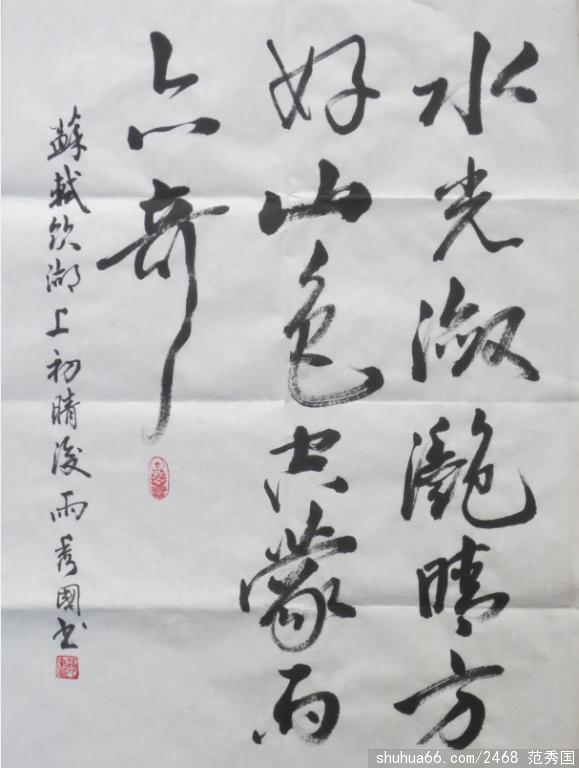 水光潋滟晴方
好山色空蒙雨
亦奇
蘇軾飲湖上初晴後雨秀國书
shuhua66.com/2468 范秀国